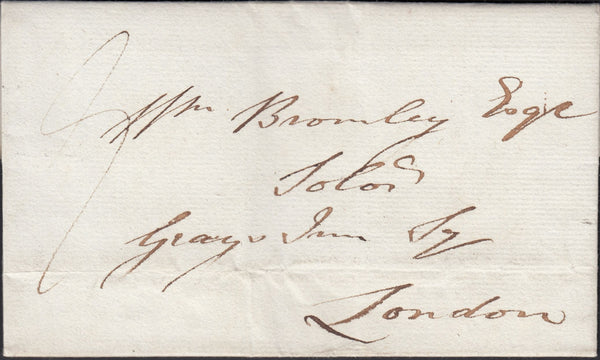 Wm Bromley Esqe
Solor
Grays Inn Sq
London